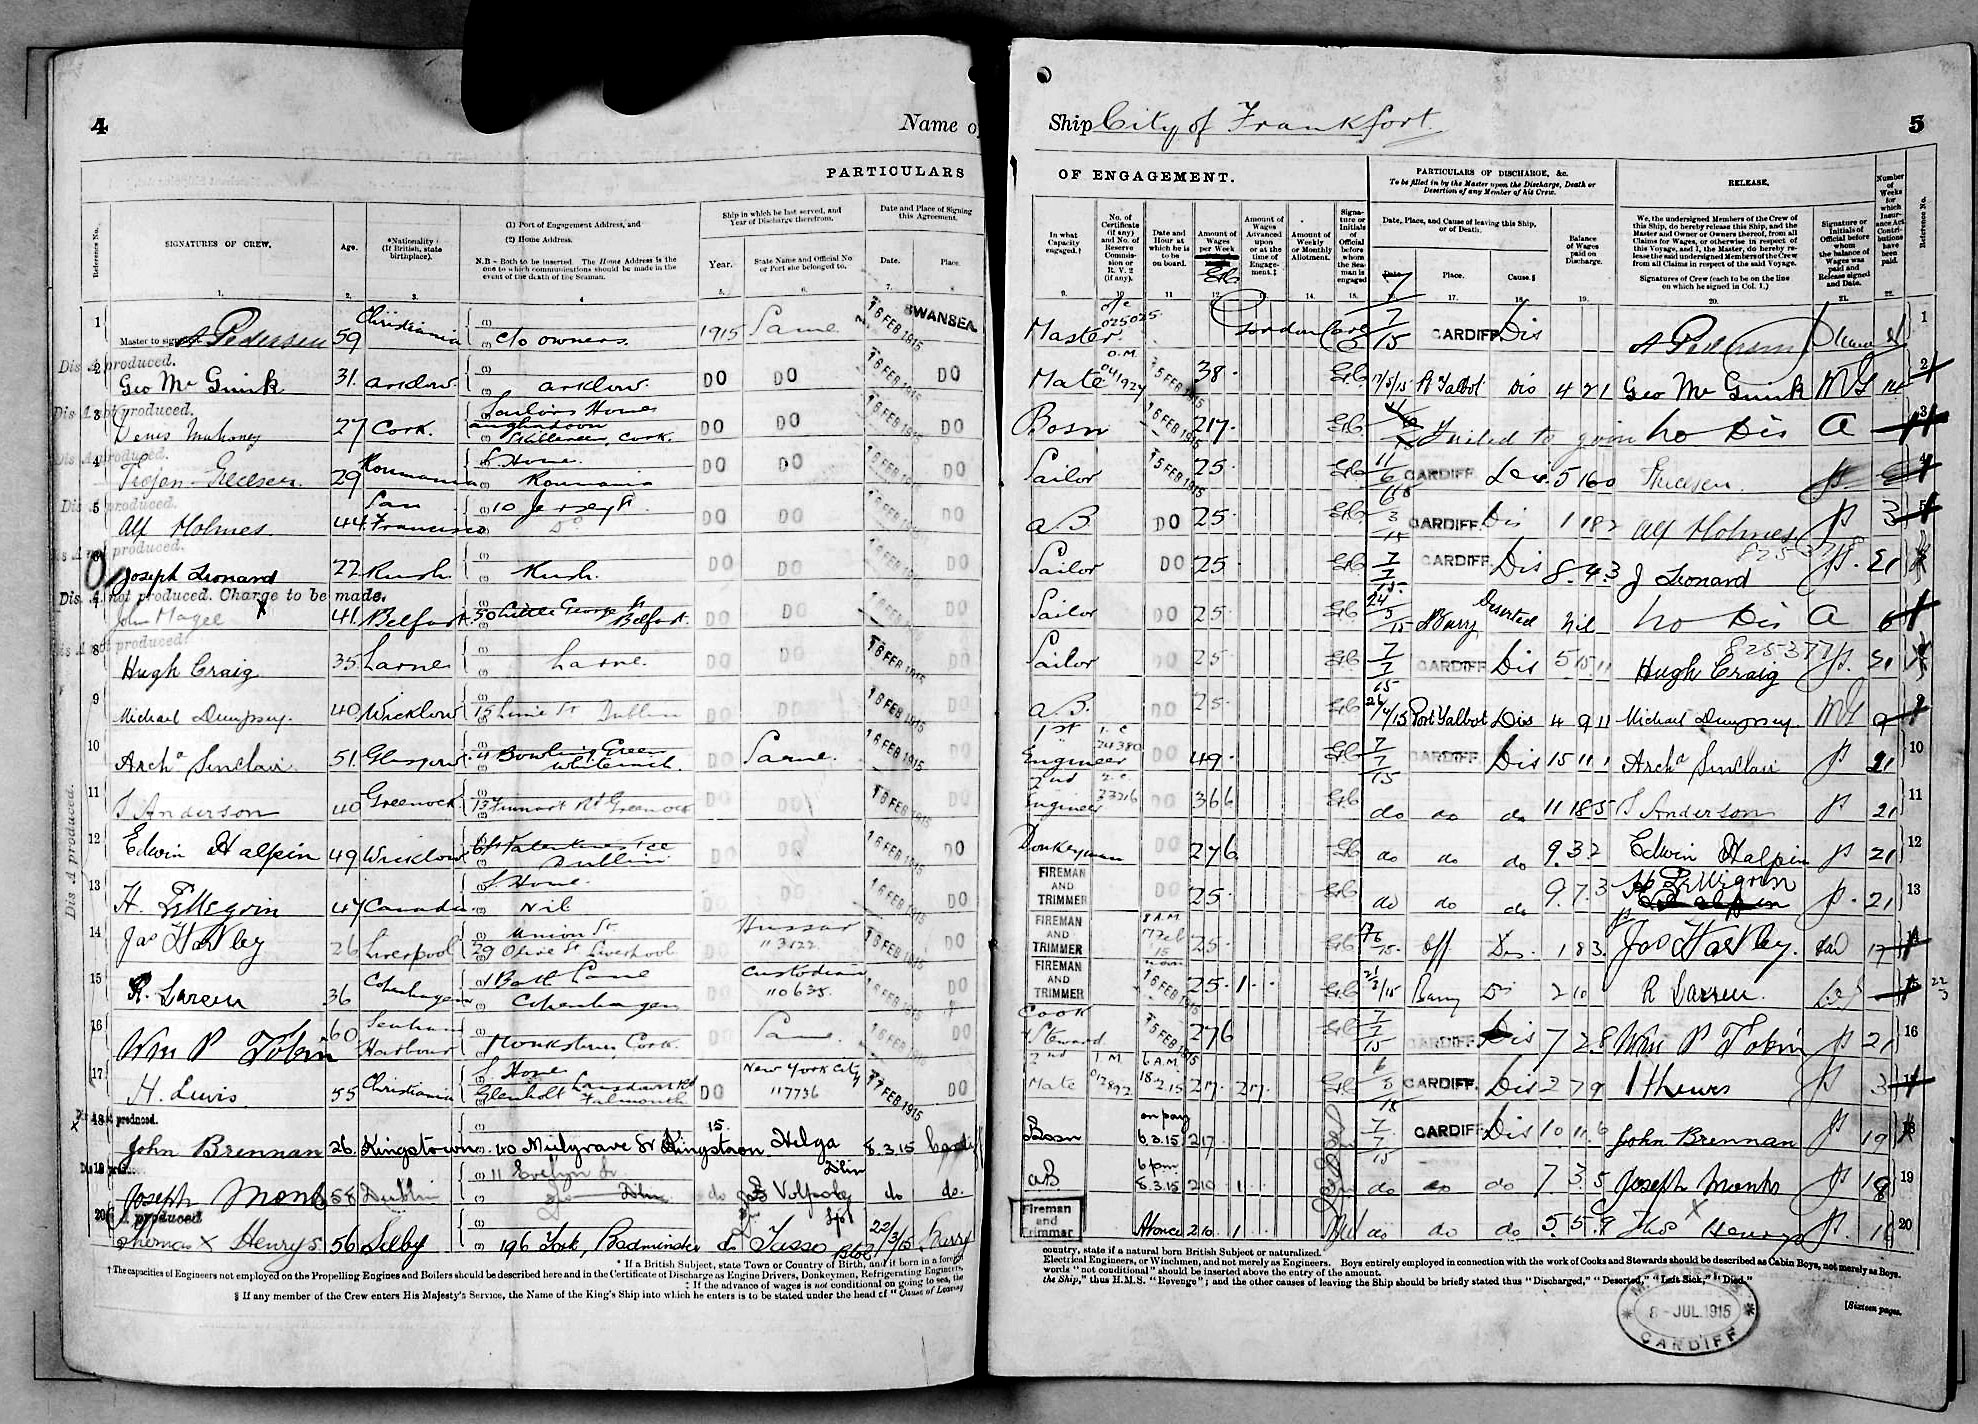 4
Name o
PARTICULARS
Reference No.
SIGNATURES OF CREW.
Age.
*Nationality
(If British, state
birthplace).
(1) Port of Engagement Address, and
(2) Home Address.
N.B - Both to be inserted. The Home Address is the
one to which communications should be made in the
event of the death of the Seaman.
Ship in which he last served, and
Year of Discharge therefrom.
Year.
State Name and Official No
or Port she belonged to.
Date and Place of Signing
this Agreement.
Date.
Place.
1 Master to sign A Pedersen 59 Christiania c/o owners. 1915 Same 16 FEB 1915 SWANSEA
Dis A produced.
2 Geo Mc Guirk 31. Arklow Arklow. DO DO 16 FEB 1915 DO
produced.
3 Denis Mahoney 27 Cork. Sailors Home Cork. DO DO 16 FEB 1915 DO
produced.
4 29 Roumania S Home. Roumania DO DO 16 FEB 1915 DO
Dis A produced.
5 Alf Holmes. 44 San Francisco 10 Jersey St. Do DO DO 16 FEB 1915 DO
produced.
6 Joseph Leonard 22 Rush Rush. DO DO 16 FEB 1915 DO
Dis. A not produced. Charge to be made.
7 John Magee X 41. Belfast. 50 Little George St Belfast. DO DO 16 FEB 1915 DO
produced
8 Hugh Craig 35. Larne Larne. DO DO 16 FEB 1915 DO
9 Michael Dempsey. 40 Wicklow 15 Lime St Dublin DO DO 16 FEB 1915 DO
10 Archd Sinclair. 51. Glasgow. 4 Bowling Green Whiteinch. Same. 16 FEB 1915 DO
11 Anderson 40 Greenock Finnart Rd Greenock DO DO 16 FEB 1915 DO
12 Edwin Halpin 49 Wicklow Dublin DO DO 16 FEB 1915 DO
13 H. 47 Canada S Home. Nil DO DO 16 FEB 1915 DO
14 Jas Hartley 26 Liverpool Union St. 29 Olive St Liverpool DO Hussar 113122 16 FEB 1915 DO
15 R. Larsen 36 Copenhagen 1 Bath Lane Copenhagen DO Custodian 110635 16 FEB 1915 DO
16 Wm P Tobin 60 Seaham Harbour Monkstown Cork. DO Same. 16 FEB 1915 DO
17 H. Lewis. 55 Christiania S Home Glenholt Lansdown Rd Falmouth DO New York City 117736 17 FEB 1915 DO
produced.
18 John Brennan 26. Kingstown 40 Mulgrave St Kingstown 15. Helga 8.3.15 Cardiff
19 Joseph Monks 58 Dublin 11 Evelyn St Dblin do Dblin do do.
A produced
20 Thomas X Henrys. 56 Selby 196 York, Bedminster do Tasso Bstol 22/3/15 Barry
Dis A produced.
* If a British Subject, state Town or Country of Birth, and if born in a foreign
† The capacities of Engineers not employed on the Propelling Engines and Boilers should be described here and in the Certificate of Discharge as Engine Drivers, Donkeymen, Refrigerating Engineers,
‡ If the advance of wages is not conditional on going to sea, the
§ If any member of the Crew enters His Majesty's Service, the Name of the King's Ship into which he enters is to be stated under the head of "Cause of Leaving
Ship City of Frankfort
5
OF ENGAGEMENT.
PARTICULARS OF DISCHARGE, &c.
To be filled in by the Master upon the Discharge, Death or
Desertion of any Member of his Crew.
RELEASE.
In what
Capacity
engaged.†
No. of
Certificate
(if any)
and No. of
Reserve
Commis-
sion or
R. V. 2
(if any).
Date and
Hour at
which he is
to be
on board.
Amount of
Wages
per Week
Amount of
Wages
Advanced
upon
or at the
time of
Engage-
ment.‡
Amount of
Weekly
or Monthly
Allotment.
Signa-
ture or
Initials
of
Official
before
whom
the Sea-
man is
engaged
Date, Place, and Cause of leaving this Ship,
or of Death.
Date.
Place.
Cause.§
Balance
of Wages
paid on
Discharge.
We, the undersigned Members of the Crew of
this Ship, do hereby release this Ship, and the
Master and Owner or Owners thereof, from all
Claims for Wages, or otherwise in respect of
this Voyage, and I, the Master, do hereby re-
lease the said undersigned Members of the Crew
from all Claims in respect of the said Voyage.
Signatures of Crew (each to be on the line
on which he signed in Col. 1.)
Signature or
Initials of
Official before
whom
the balance of
Wages was
paid and
Release signed
and Date.
Number
of
Weeks
for
which
Insur-
ance Act
Contri-
butions
have
been
paid.
Reference No.
Master. 025025 7/7/15 CARDIFF. Dis A Pedersen 1
Mate O.M. 041924 15 FEB 1915 38. 17/5/15 Pt Talbot Dis 4 2 1 Geo Mc Guirk 2
Bosn 16 FEB 1915 217. Failed to join No Dis A 3
Sailor 15 FEB 1915 25. 11/6 CARDIFF Dis 5 16 0 4
AB DO 25. CARDIFF. Dis 1 18 2 Alf Holmes 3 5
Sailor DO 25. 7/7/15. CARDIFF Dis 8. 4 3 J Leonard 21 6
Sailor DO 25. 24/3/15 Barry Deserted Nil No Dis A 6 7
Sailor DO 25. 7/7/15 CARDIFF Dis 5 15 11 Hugh Craig 21 8
AB. DO 25. Port Talbot Dis 4 9 11 Michael Dempsey. 9 9
1st Engineer 1. C 24380 DO 49. 7/7/15 CARDIFF. Dis 15 11 1 Archd Sinclair 21 10
2nd Engineer 2.C. 33216 DO 366 do do do 11 18 5 Anderson 21 11
Donkeyman DO 276. do do do 9. 3 2 Edwin Halpin 21 12
FIREMAN AND TRIMMER DO 25. do do do 9. 7. 3 21 13
FIREMAN AND TRIMMER 8 A.M. 17 Feb 15 25. Dis. 1 8 3. Jas Hartley. 17 14
FIREMAN AND TRIMMER 16 FEB 1915 25. 1. Barry Dis 2 10 R Larsen. 15
Cook + Steward 15 FEB 1915 276 7/7/15 CARDIFF Dis 7 2 8 Wm P Tobin 21 16
2nd Mate 1. M. 012892 6 A.M. 18.2.15 217. 217. CARDIFF. Dis 2 7 9 H Lewis 3 17
Bosn on pay 6.3.15 217 7/7/15 CARDIFF. Dis 10 11 6 John Brennan 19 18
AB 6 pm 8.3.15 210 1 do do do 7. 3. 5 Joseph Monks 18 19
Fireman and Trimmer At once 210. 1 do do do 5. 5. 9 Thos X Henrys 16 20
country, state if a natural born British Subject or naturalized.
Electrical Engineers, or Winchmen, and not merely as Engineers. Boys entirely employed in connection with the work of Cooks and Stewards should be described as Cabin Boys, not merely as Boys.
words "not conditional" should be inserted above the entry of the amount.
the Ship," thus H.M.S. "Revenge"; and the other causes of leaving the Ship should be briefly stated thus "Discharged," "Deserted," "Left Sick," "Died."
[Sixteen pages.
8 - JUL. 1915
CARDIFF